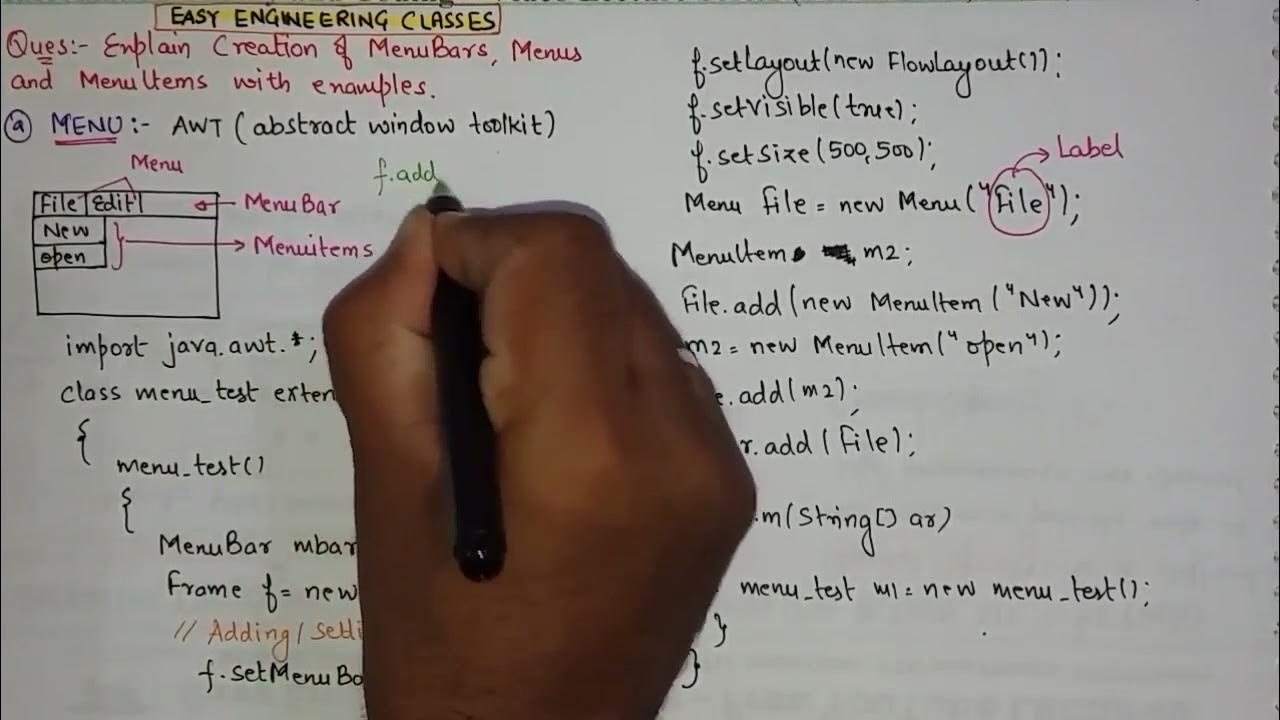 EASY ENGINEERING CLASSES
Ques:- Explain Creation of MenuBars, Menus
and MenuItems with examples.
(a) MENU:- AWT (abstract window toolkit)
Menu
f.add
File Edit
MenuBar
New
Menuitems
open
import java.awt.*;
class menu_test exten
{
menu_test()
{
MenuBar mbar
Frame f= new
// Adding/ Setti
f.setMenuBa
f.setLayout(new FlowLayout());
f.setVisible(true);
f.setSize(500,500);
Label
Menu file = new Menu("file");
MenuItem m2;
File.add(new MenuItem("New"));
m2 = new MenuItem("open");
e.add(m2);
r.add(File);
.m(String[] ar)
menu_test m1 = new menu_test();
}
}